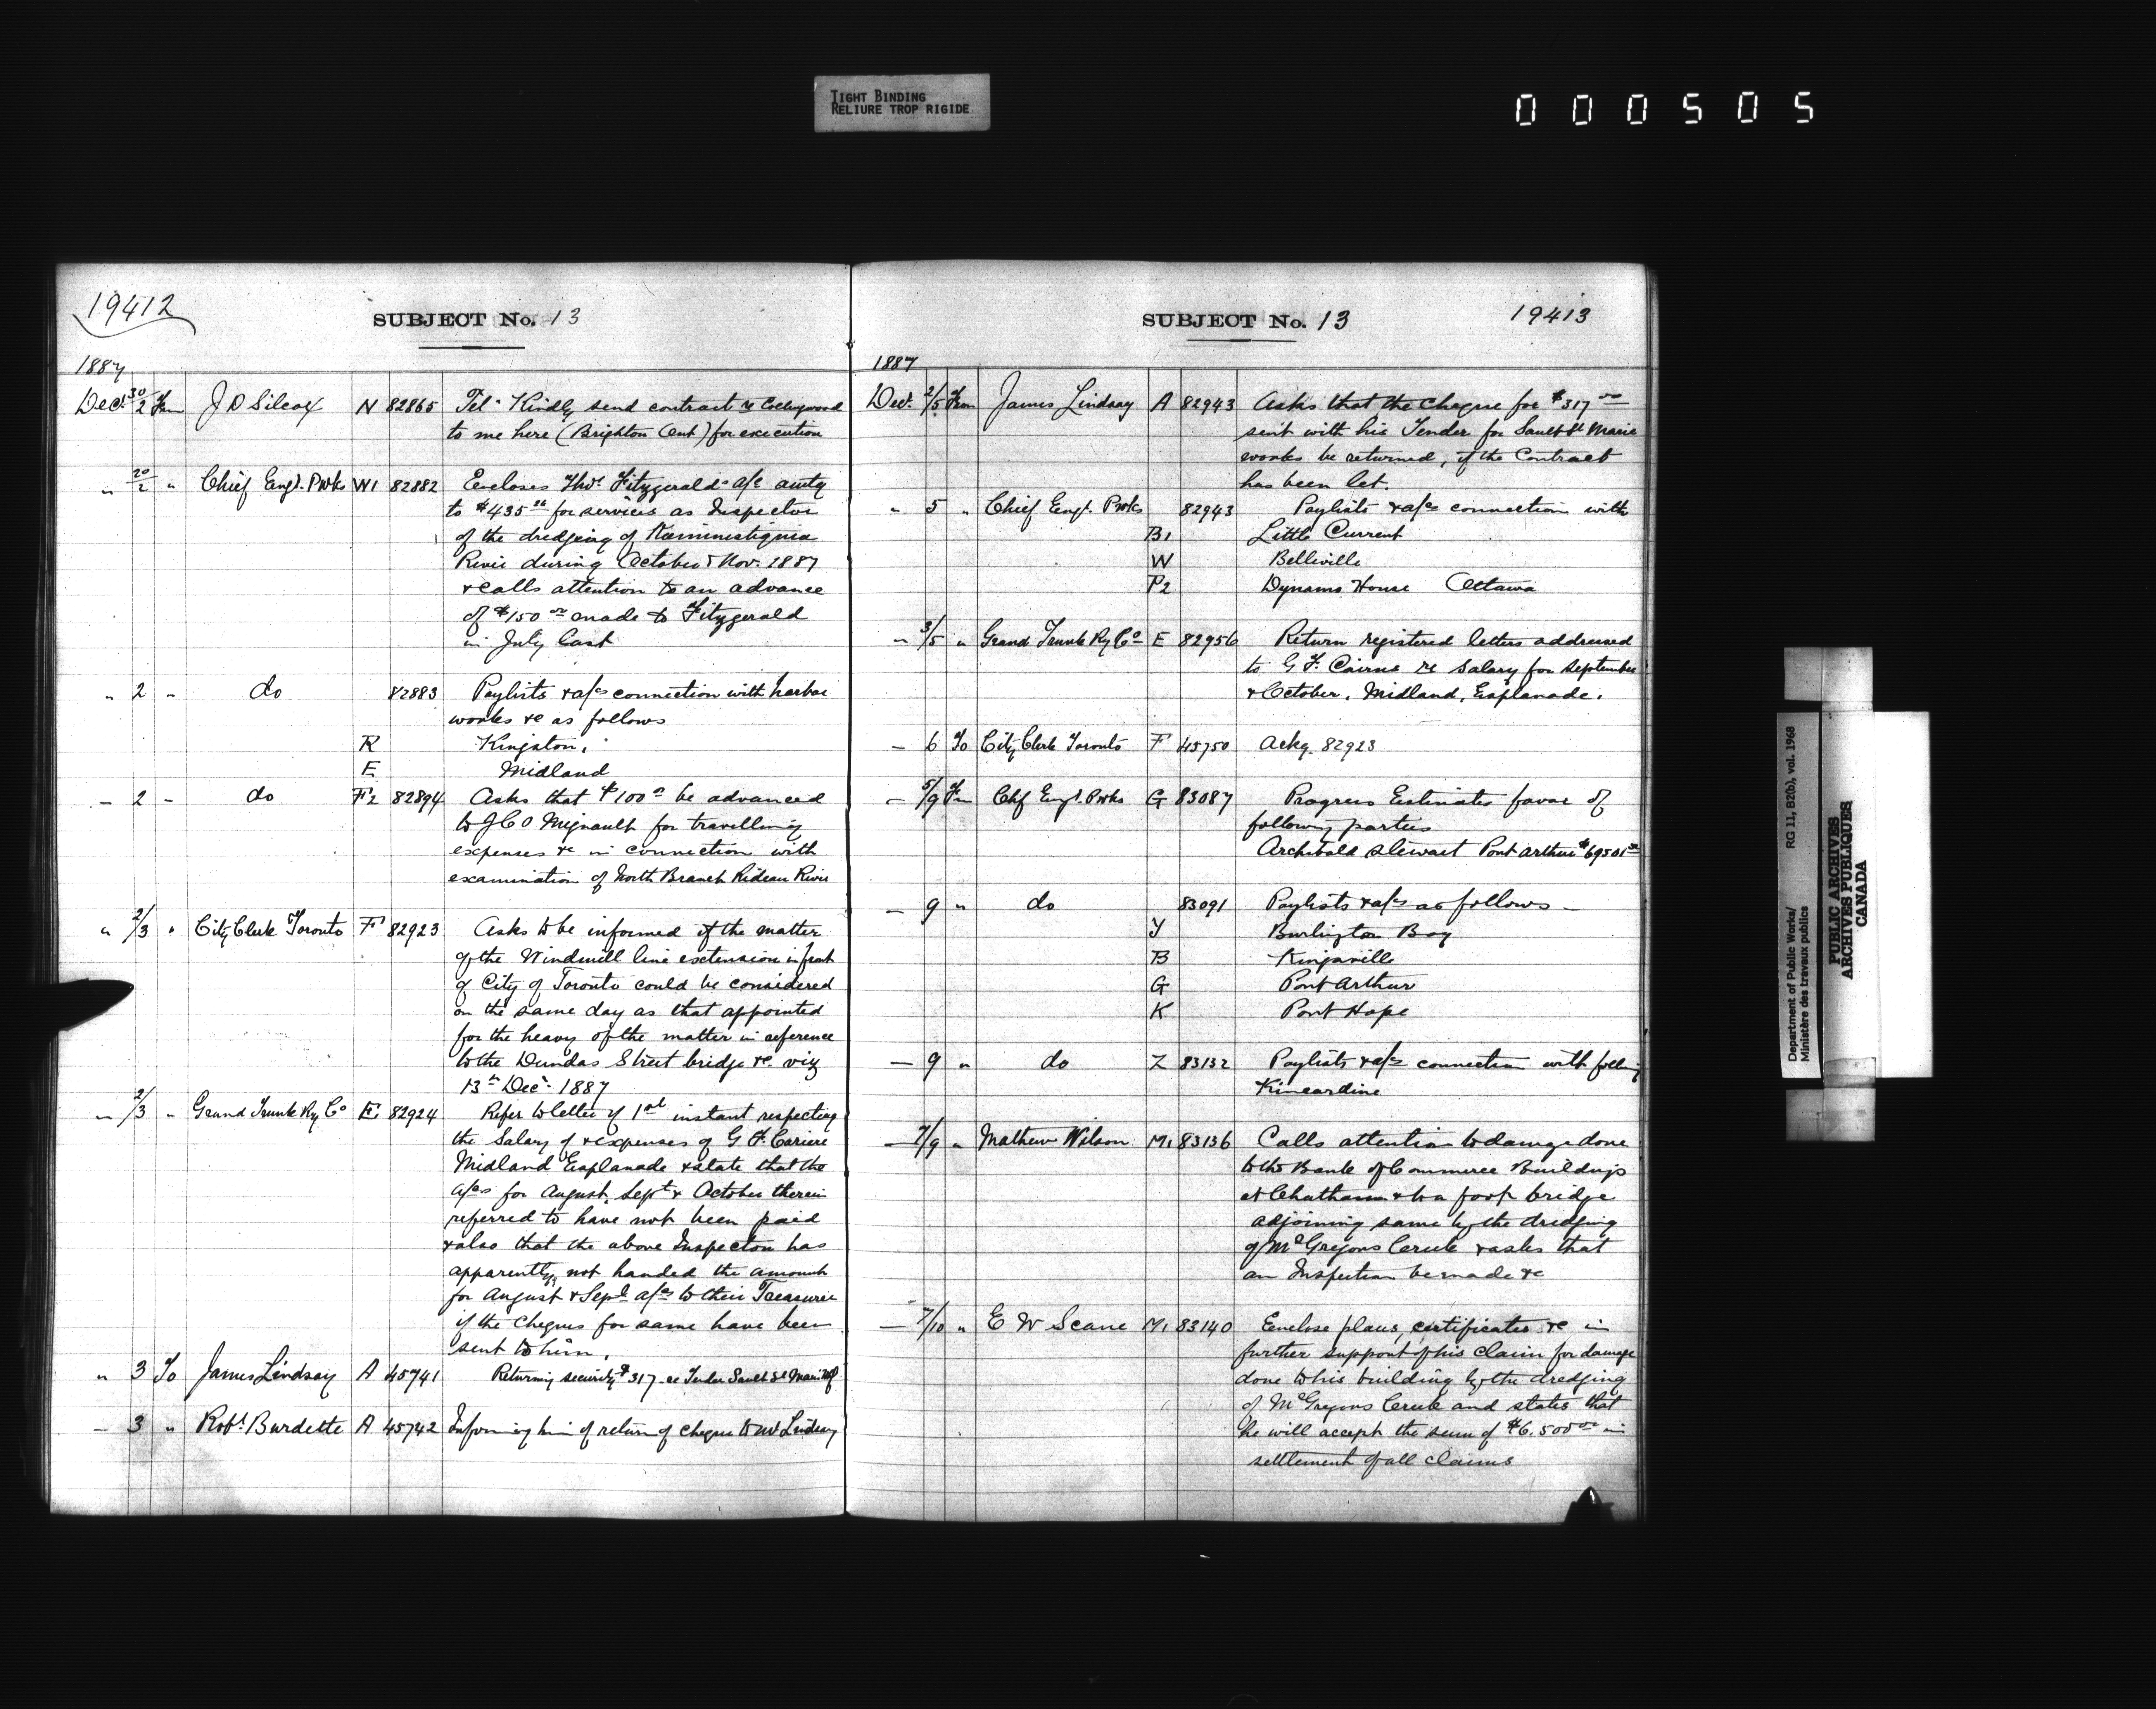 TIGHT BINDING
RELIURE TROP RIGIDE
000505
19412
SUBJECT No. 13
1887
Dec. 30/2 From J D Silcox N 82865 Tel. Kindly send contract re Collingwood
to me here (Brighton Ont) for execution
" 30/2 " Chief Engr. P Wks W1 82882 Encloses Thos. Fitzgeralds a/c amtg
to $435 for services as Inspector
of the dredging of Kaministiquia
River during October & Nov. 1887
& calls attention to an advance
of $150 00 made to Fitzgerald
in July last
" 2 " do 82883 Paylists & a/cs connection with harbor
works &c as follows
R Kingston,
E Midland
" 2 " do F2 82894 Asks that $100 be advanced
to J C O Mignault for travelling
expenses &c in connection with
examination of North Branch Rideau River
" 2/3 " City Clerk Toronto F 82923 Asks to be informed if the matter
of the Windmill line extension in front
of City of Toronto could be considered
on the same day as that appointed
for the hearg of the matter in reference
to the Dundas Street bridge &c. viz
13th Dec. 1887
" 2/3 " Grand Trunk Ry Co E 82924 Refer to letter of 1st instant respecting
the Salary of & expenses of G F. Cariere
Midland Esplanade & state that the
a/cs for August, Sept & October therein
referred to have not been paid
& also that the above Inspector has
apparently, not handed the amount
for August & Sept a/cs to their Treasurer
if the Cheques for same have been
sent to him.
" 3 To James Lindsay A 45741 Returning security $317 re Tender Sault St Marie
" 3 " Robt. Burdette A 45742 Informing him of return of cheque to Mr Lindsay
SUBJECT No. 13 19413
1887
Dec. 2/5 From James Lindsay A 82943 Asks that the Cheque for $317 00
sent with his Tender for Sault St Marie
works be returned, if the Contract
has been let.
" 5 " Chief Engr. P Wks 82943 Paylists & a/cs connection with
B1 Little Current
W Belleville
P2 Dynamo House Ottawa
" 3/5 " Grand Trunk Ry Co E 82956 Return registered letters addressed
to G F. Cairns re Salary for September
& October, Midland, Esplanade.
" 6 To City Clerk Toronto F 45750 Ackg. 82923
" 5/9 Fm Chf Engr. P Wks G 83087 Progress Estimates favor of
following parties
Archibald Stewart Port Arthur $69501
" 9 " do 83091 Paylists & a/cs as follows -
Y Burlington Bay
B Kingsville
G Port Arthur
K Port Hope
" 9 " do Z 83132 Paylists & a/cs connection with follg
Kincardine
" 7/9 " Mathew Wilson M1 83136 Calls attention to damage done
to the Bank of Commerce Buildings
at Chatham & to a foot bridge
adjoining same by the dredging
of McGregors Creek & asks that
an Inspection be made &c
" 7/10 " E W Scane M1 83140 Enclose plans, certificates &c in
further support of his Claim for damage
done to his building by the dredging
of McGregors Creek and states that
he will accept the sum of $6,500 00 in
settlement of all claims
Department of Public Works/ RG 11, B2(b), vol. 1968
Ministère des travaux publics
PUBLIC ARCHIVES
ARCHIVES PUBLIQUES
CANADA